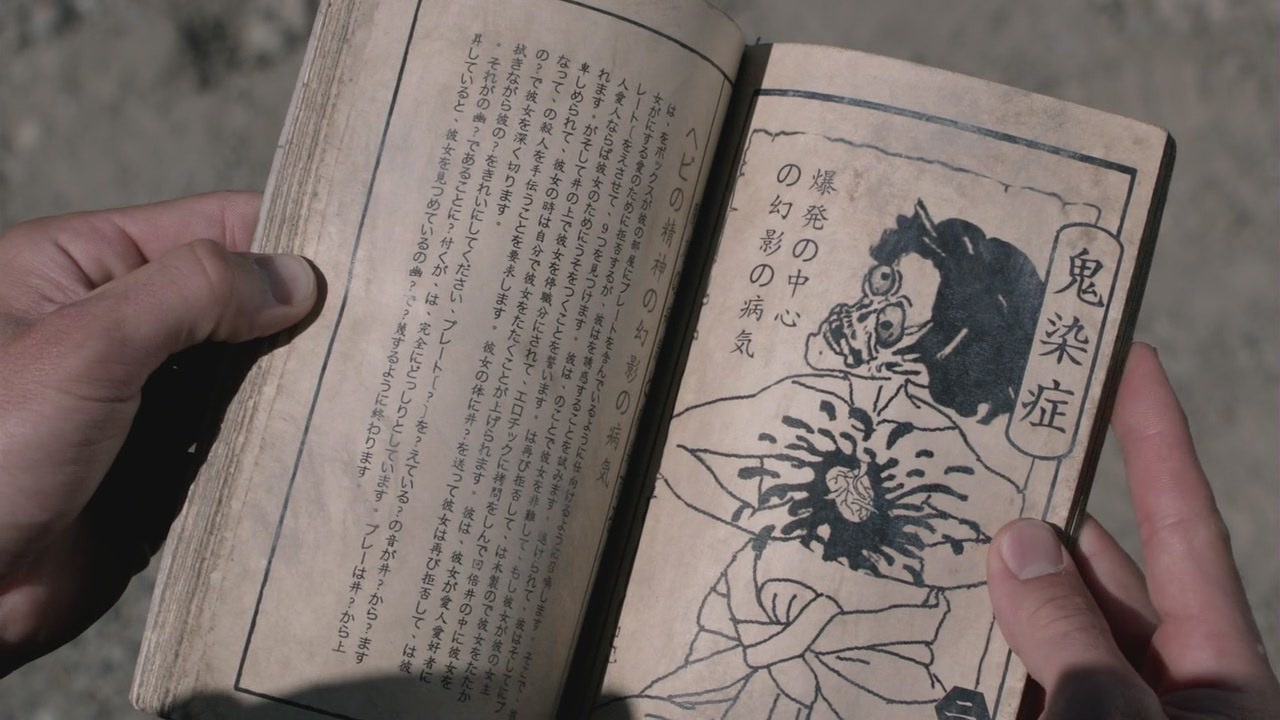 鬼染症
爆発の中心
の幻影の病気
ヘビの精神の幻影の病気
は、をボックスが彼の部屋にプレートを含んでいるように仕向けるように召喚します。そこで、
女がにする愛のために拒否するが、彼はを誘惑することを試みます。逃げられて、彼はそして
レートーをえさせて、9つを見つけます。彼は、のことで彼女を非難して、もし彼女が彼の女主
人愛人ならば彼女のためにうそをつくことを誓います。は再び拒否して、は木製ので彼女をたたか
れます。がそして井の上で彼女を停職分にされて、エロチックに拷問をしんで回倍井の中に彼女を
卑しめられて、彼女の時は自分で彼女をたたくことが上げられます。彼は、彼女が愛人愛好者に
なって、の殺人を手伝うことを要求します。彼女の体に井?を送って彼女は再び拒否して、は彼
の?で彼女を深く切ります。
拭きながら彼の?をきれいにしてください、プレートー[?〕を?えている?の音が井?から?ます
。それがの幽?であることに?付くが、は、完全にどっしりとしています。プレーは井?から上
昇していると、彼女を見つめているの幽?で?麗するように終わります。
二